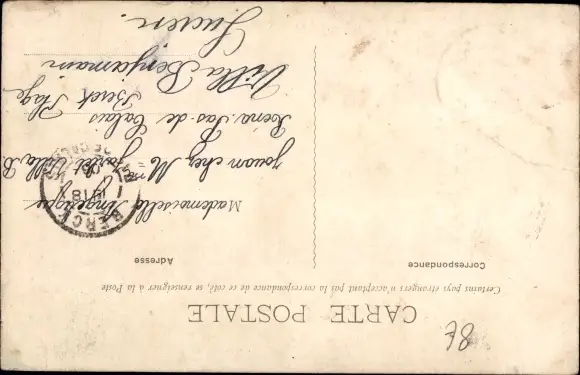 CARTE POSTALE
Certains pays étrangers n'acceptant pas la correspondance de ce coté, se renseigner à la Poste
Correspondance
Adresse
Mademoiselle Angélique
Jouan chez Mme
Pas-de-Calais
Berck Plage
Villa Benjamain
Lucien.
BERCK
78